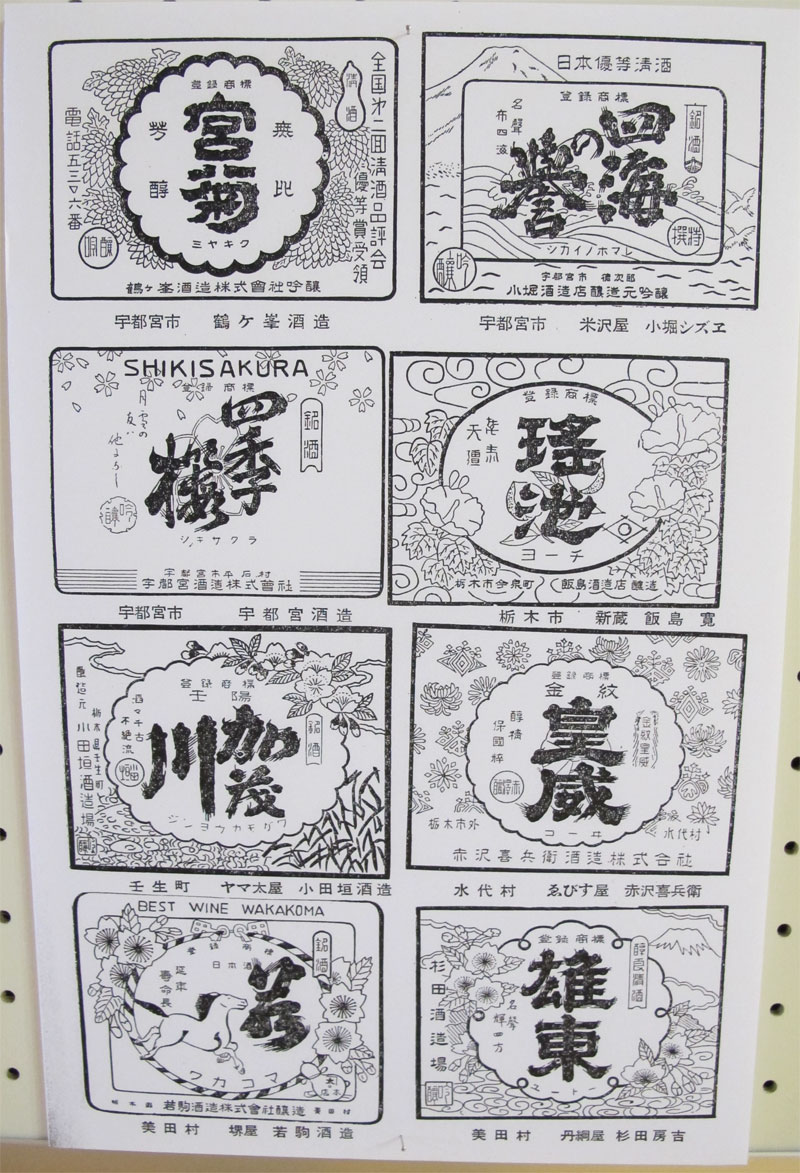 全国第二回清酒品評会
優等賞受領
清酒
登録商標
無比
宮の菊
芳醇
ミヤキク
電話五三〇六番
吟醸
鶴ヶ峯酒造株式會社吟釀
宇都宮市 鶴ケ峯酒造
日本優等清酒
登録商標
銘酒
四海の誉
名聲
布四海
シカイノホマレ
特撰
吟釀
宇都宮市
小堀酒造店釀造元吟釀
宇都宮市 米沢屋 小堀シズヱ
SHIKISAKURA
登録商標
銘酒
四季桜
月雪の
友は
他になし
シキサクラ
吟釀
宇都宮市平石村
宇都宮酒造株式會社
宇都宮市 宇都宮酒造
登録商標
瑤池
ヨーチ
栃木市今泉町 飯島酒造店釀造
栃木市 新蔵 飯島寛
登録商標
壬陽
銘酒
加茂川
酒々千古
不絶流
ジンヨウカモガワ
栃木縣壬生町
釀造元 小田垣酒造場
壬生町 ヤマ太屋 小田垣酒造
登録商標
金紋
皇威
金紋皇威
醇擣
保國粋
コーヰ
栃木市外 水代村
赤沢喜兵衛酒造株式会社
水代村 ゑびす屋 赤沢喜兵衛
BEST WINE WAKAKOMA
登録商標
日本酒
銘酒
延年
壽命長
ワカコマ
栃木縣 若駒酒造株式會社釀造 美田村
美田村 堺屋 若駒酒造
登録商標
醇良清酒
雄東
名聲
輝四方
ユートー
杉田酒造場
美田村 丹綱屋 杉田房吉